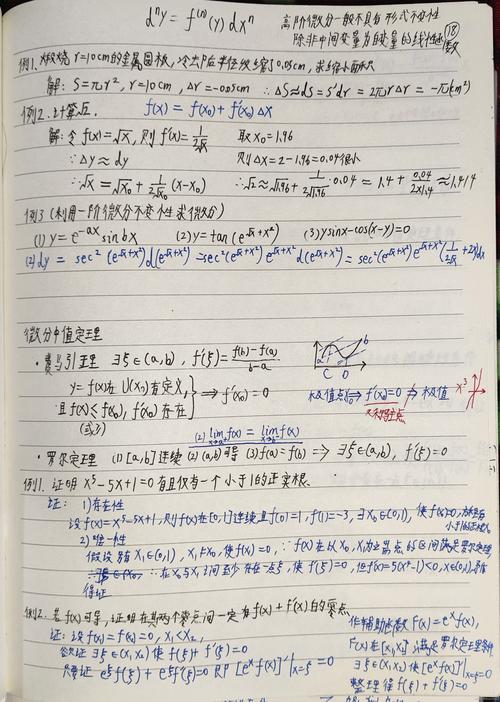 dⁿy = f⁽ⁿ⁾(y) dxⁿ
高阶微分一般不具有形式不变性
除非中间变量为自变量的线性函数
⑱
例1. 烧 r=10cm的金属圆板，冷去后半径收缩了0.05cm，求缩小面积
解：S=πr², r=10cm, Δr=-0.05cm ∴ΔS≈ds=S'dr=2πrΔr=-π(cm²)
例2. 计算√2. f(x)=f(x₀)+f'(x₀)ΔX
解：令f(x)=√x, 则f'(x)=1/(2√x) 取X₀=1.96
∵Δy≈dy 则ΔX=2-1.96=0.04很小
∴√x≈√x₀+1/(2√x₀)(x-x₀) ∴√2≈√1.96+1/(2√1.96)·0.04=1.4+0.04/(2×1.4)≈1.414
例3 (利用一阶微分不变性求微分)
(1) y=e^(-ax)sinbx (2) y=tan(e^(√x+x²)) (3) ysinx-cos(x-y)=0
(2) dy=sec²(e^(√x+x²))d(e^(√x+x²))=sec²(e^(√x+x²))e^(√x+x²)d(√x+x²)=sec²(e^(√x+x²))e^(√x+x²)(1/(2√x)+2x)dx
微分中值定理
·费马引理 ∃ξ∈(a,b), f'(ξ)=(f(b)-f(a))/(b-a)
a C D b
y=f(x)在U(x₀)有定义, 且f(x)≤f(x₀), f'(x₀)存在 } ⇒ f'(x₀)=0
(或≥)
极值点x₀ ⇒ f'(x₀)=0 ⇏ 极值 x³
驻点
(2) lim f(x)=lim f(x)
·罗尔定理 (1) [a,b]连续 (2) (a,b)可导 (3) f(a)=f(b) ⇒ ∃ξ∈(a,b), f'(ξ)=0
例1. 证明 x⁵-5x+1=0有且仅有一个小于1的正实根.
证： 1)存在性
设f(x)=x⁵-5x+1, 则f(x)在[0,1]连续且f(0)=1, f(1)=-3, ∃x₀∈(0,1), 使f(x₀)=0, 方程有小于1的正根x₀
2)唯一性
假设另有X₁∈(0,1), X₁≠X₀, 使f(x₁)=0, ∵f(x)在以X₀, X₁为端点的区间满足罗尔定理
∴在X₀与X₁之间至少存在一点ξ, 使f'(ξ)=0, 但f'(x)=5(x⁴-1)<0, x∈(0,1),
得证
例2. 若f(x)可导, 证明在其两个零点间一定有f(x)+f'(x)的零点
证：设f(x₁)=f(x₂)=0, x₁<x₂,
欲证∃ξ∈(x₁,x₂)使f(ξ)+f'(ξ)=0
只要证e^ξf(ξ)+e^ξf'(ξ)=0 即[e^x f(x)]'|x=ξ=0
作辅助函数F(x)=e^x f(x),
F(x)在[x₁,x₂]满足罗尔定理条件
∃ξ∈(x₁,x₂)使[e^x f(x)]'|x=ξ=0
整理得f(ξ)+f'(ξ)=0